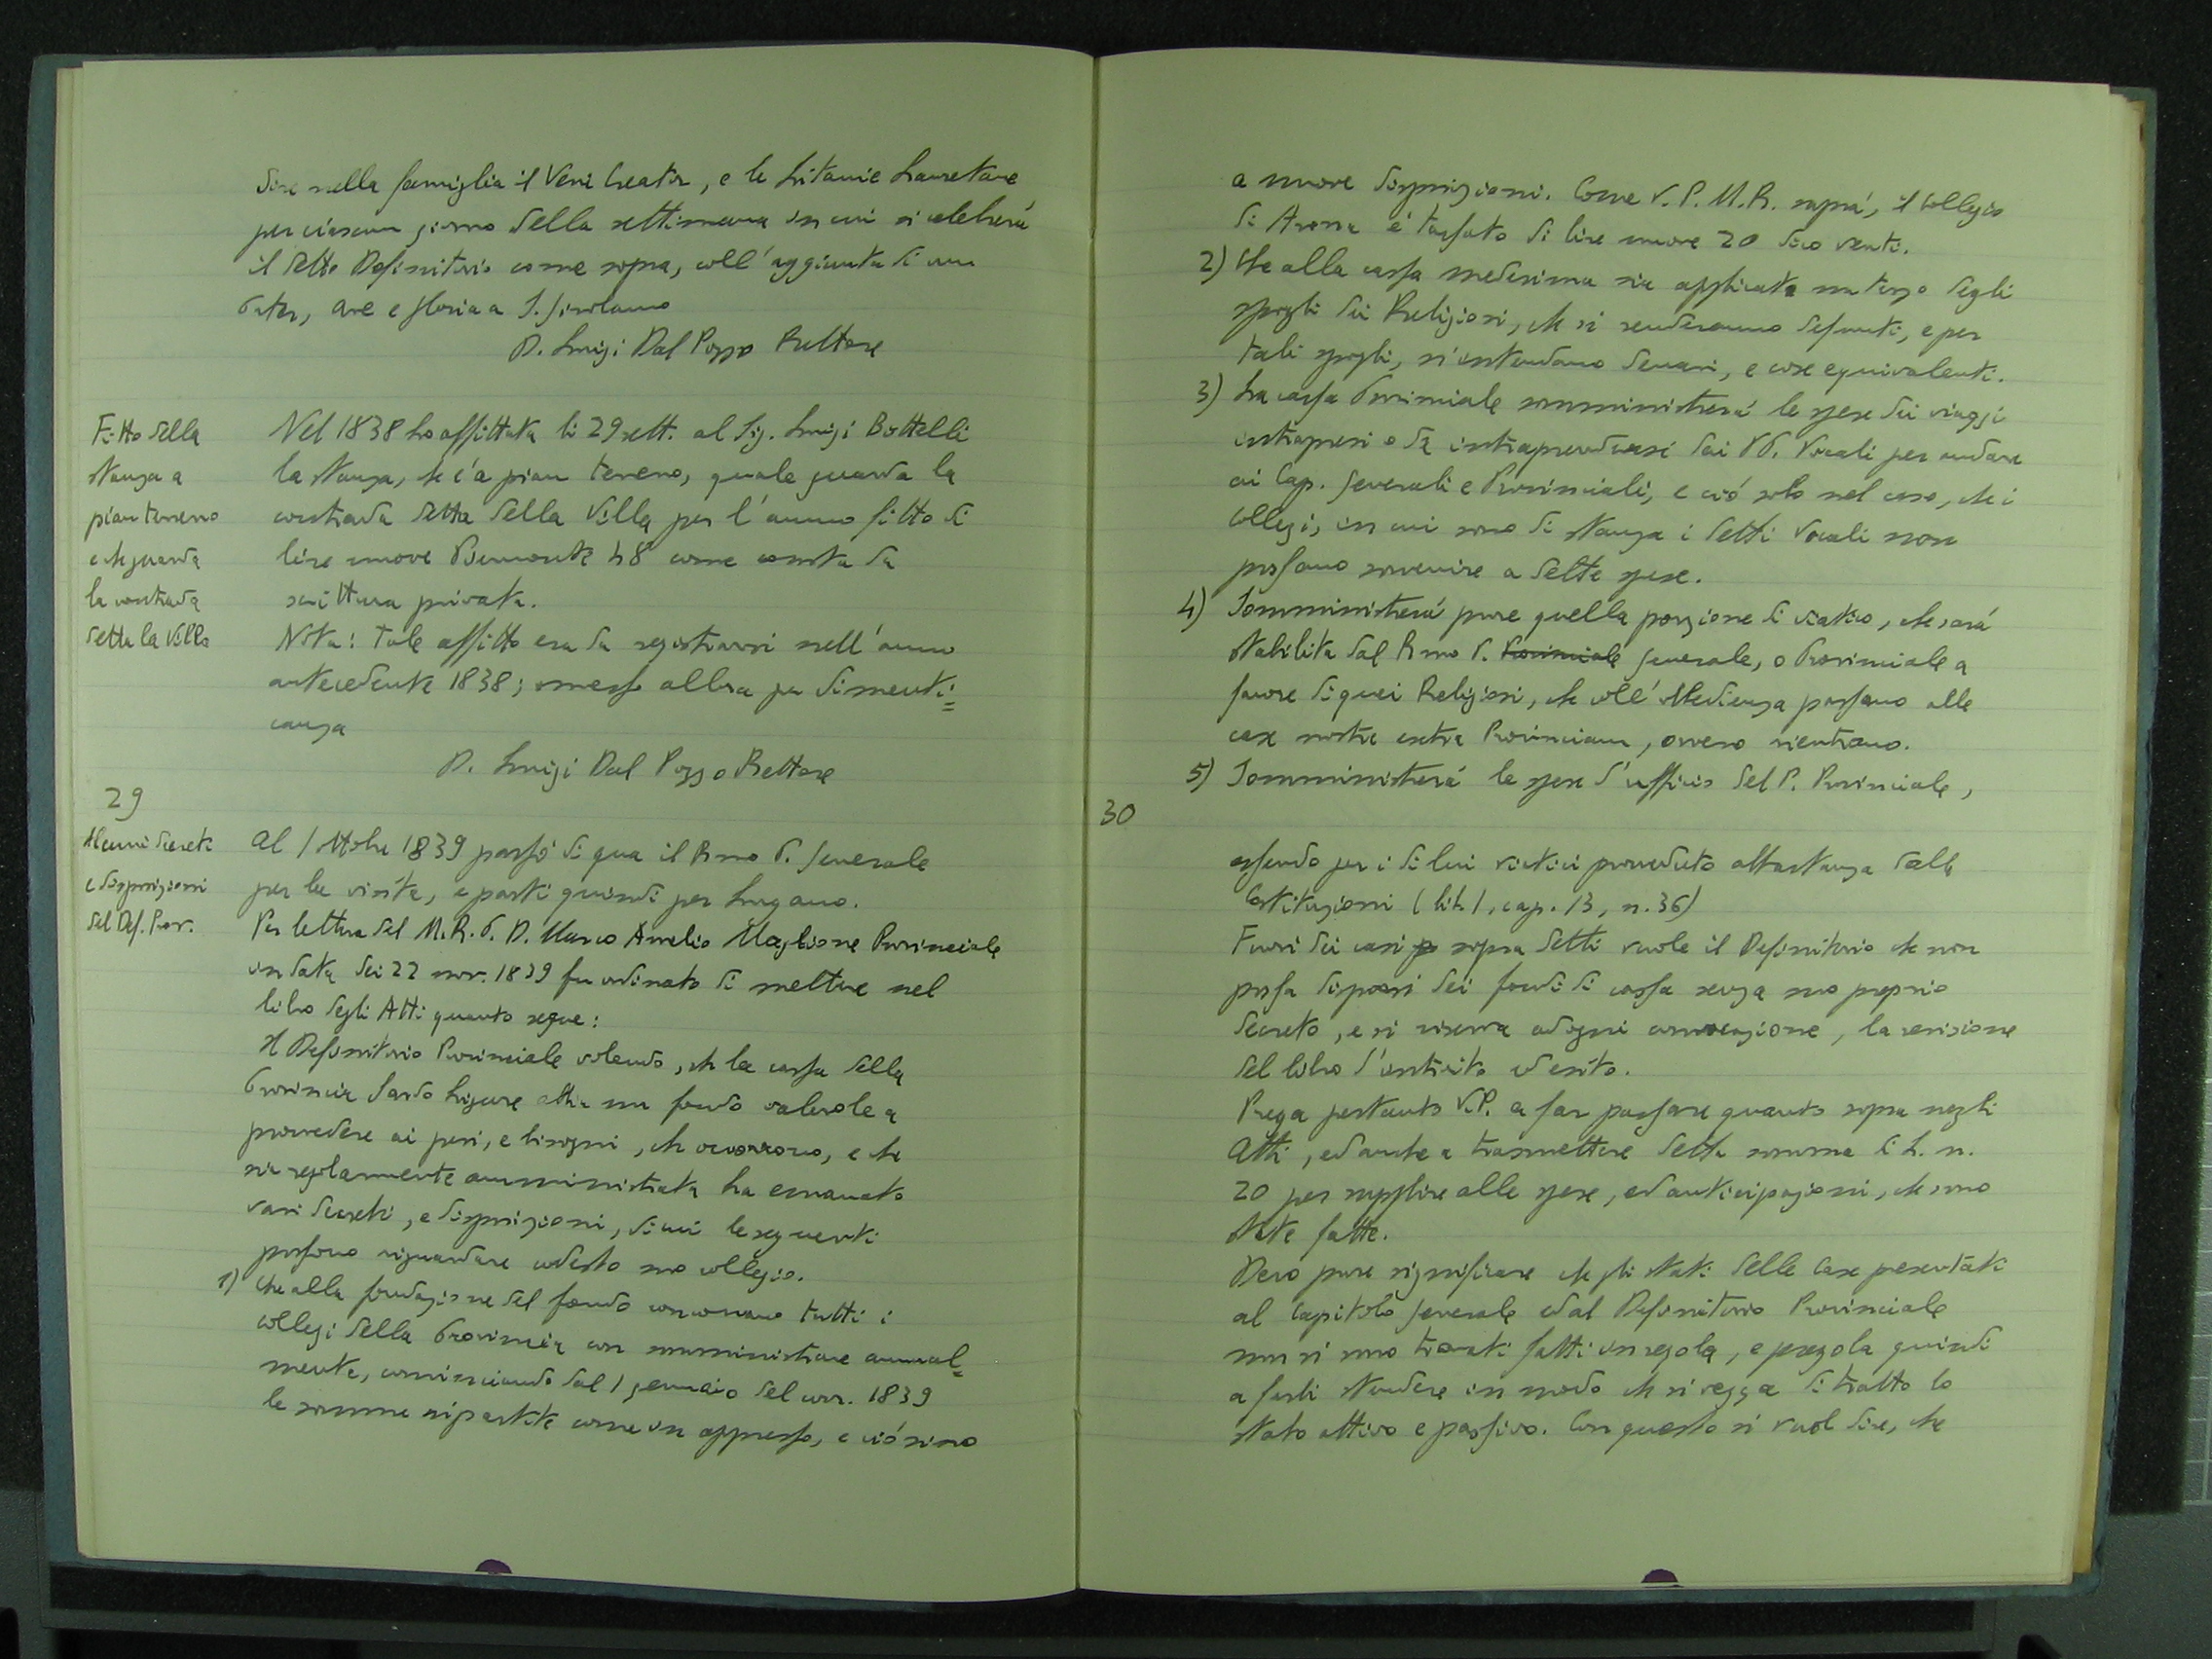 dire nella famiglia il Veni Creator, e le Litanie Lauretane
per ciascun giorno della settimana in cui si celebrerà
il detto Definitorio come sopra, coll'aggiunta di un
Pater, ave e gloria a S. Girolamo
D. Luigi Dal Pozzo Rettore
Fitto della
stanza a
pian terreno
e che guarda
la contrada
detta la Villa
Nel 1838 ho affittata li 29 sett. al Sig. Luigi Bottelli
la stanza, che è a pian terreno, quale guarda la
contrada detta della Villa per l'annuo fitto di
lire nuove Piemonte 48 come consta da
scrittura privata.
Nota: tale affitto era da registrarsi nell'anno
antecedente 1838; omesso allora per dimenti=
canza
D. Luigi Dal Pozzo Rettore
29
Alcuni decreti
e disposizioni
del Def. Prov.
Al 1 ottobre 1839 passò di qua il Rmo P. Generale
per la visita, e partì quindi per Lugano.
Per lettera del M. R. P. D. Marco Aurelio Maglione Provinciale
in data dei 22 nov. 1839 fu ordinato di mettere nel
libro degli Atti quanto segue:
Il Definitorio Provinciale volendo, che la cassa della
Provincia Sardo Ligure abbia un fondo valevole a
provvedere ai pesi, e bisogni, che occorrono, e che
sia regolarmente amministrata ha emanato
vari decreti, e disposizioni, di cui le seguenti
possono riguardare codesto suo collegio.
1) Che alla fondazione del fondo concorrano tutti i
collegi della Provincia con somministrare annual=
mente, cominciando dal 1 gennaio del corr. 1839
le somme ripartite come in appresso, e ciò sino
a nuove disposizioni. Come V. P. M. R. saprà, il Collegio
di Arona è tassato di lire nuove 20 dico venti.
2) Che alla cassa medesima sia applicato un terzo degli
spogli dei Religiosi, che si renderanno defunti, e per
tali spogli, s'intendano denari, e cose equivalenti.
3) La cassa Provinciale somministrerà le spese dei viaggi
intrapresi o da intraprendersi dai PP. Vocali per andare
ai Cap. Generali e Provinciali, e ciò solo nel caso, che i
Collegi, in cui sono di stanza i detti Vocali non
possano sovvenire a dette spese.
4) Somministrerà pure quella porzione di viatico, che sarà
stabilita dal Rmo P. Provinciale Generale, o Provinciale a
favore di quei Religiosi, che coll'obbedienza passano alle
case nostre extra Provinciam, ovvero rientrano.
5) Somministrerà le spese d'ufficio del P. Provinciale,
30
essendo per i di lui viatici provveduto abbastanza dalle
Costituzioni (lib. 1, cap. 13, n. 36)
Fuori dei casi sopra detti vuole il Definitorio che non
possa disporsi dei fondi di cassa senza suo proprio
decreto, e si riserva ad ogni convocazione, la revisione
del libro d'introito ed esito.
Prega pertanto V. P. a far passare quanto sopra negli
Atti, ed anche a trasmettere detta somma di L. n.
20 per supplire alle spese, ed anticipazioni, che sono
state fatte.
Devo pure significare che gli stati delle Case presentati
al Capitolo Generale ed al Definitorio Provinciale
non si sono trovati fatti in regola, e pregola quindi
a farli stendere in modo che si vegga di tratto lo
stato attivo e passivo. Con questo si vuol dire, che